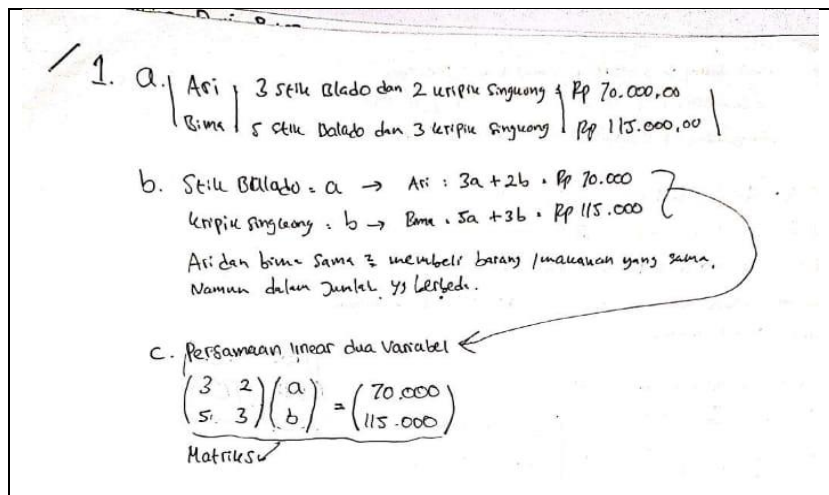 1. a. Ari 3 stik Blado dan 2 kripik singkong Rp 70.000,00
Bima 5 stik Balado dan 3 kripik singkong Rp 115.000,00
b. Stik Balado = a → Ari : 3a + 2b = Rp 70.000
kripik singkong : b → Bima = 5a + 3b = Rp 115.000
Ari dan bima sama2 membeli barang / makanan yang sama,
Namun dalam Jumlah yg berbeda.
c. Persamaan linear dua Variabel
(3 2) (a) = (70.000)
(5 3) (b) (115.000)
Matriks